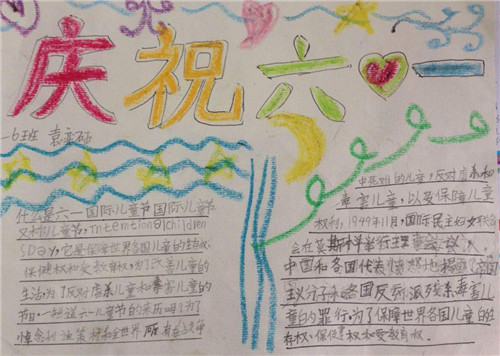 庆祝六一
一6班 袁
什么是六一国际儿童节国际儿童节
又称儿童节，International children
sDay，它是保障世界各国儿童的生存权、
保健权和受教育权，为了改善儿童的
生活，为了反对虐杀儿童和毒害儿童的
节日。说六一儿童节的来历吗？为了
悼念 和全世界所有在战争
中死难的儿童，反对虐杀和
毒害儿童，以及保障儿童
权利，1949年11月，国际民主妇女联合
会在莫斯科举行理事会议，
中国和各国代表愤怒地揭露了帝国
主义分子和各国反动派残杀、毒害儿
童的罪行。为了保障世界各国儿童的生
存权、保健权和受教育权。